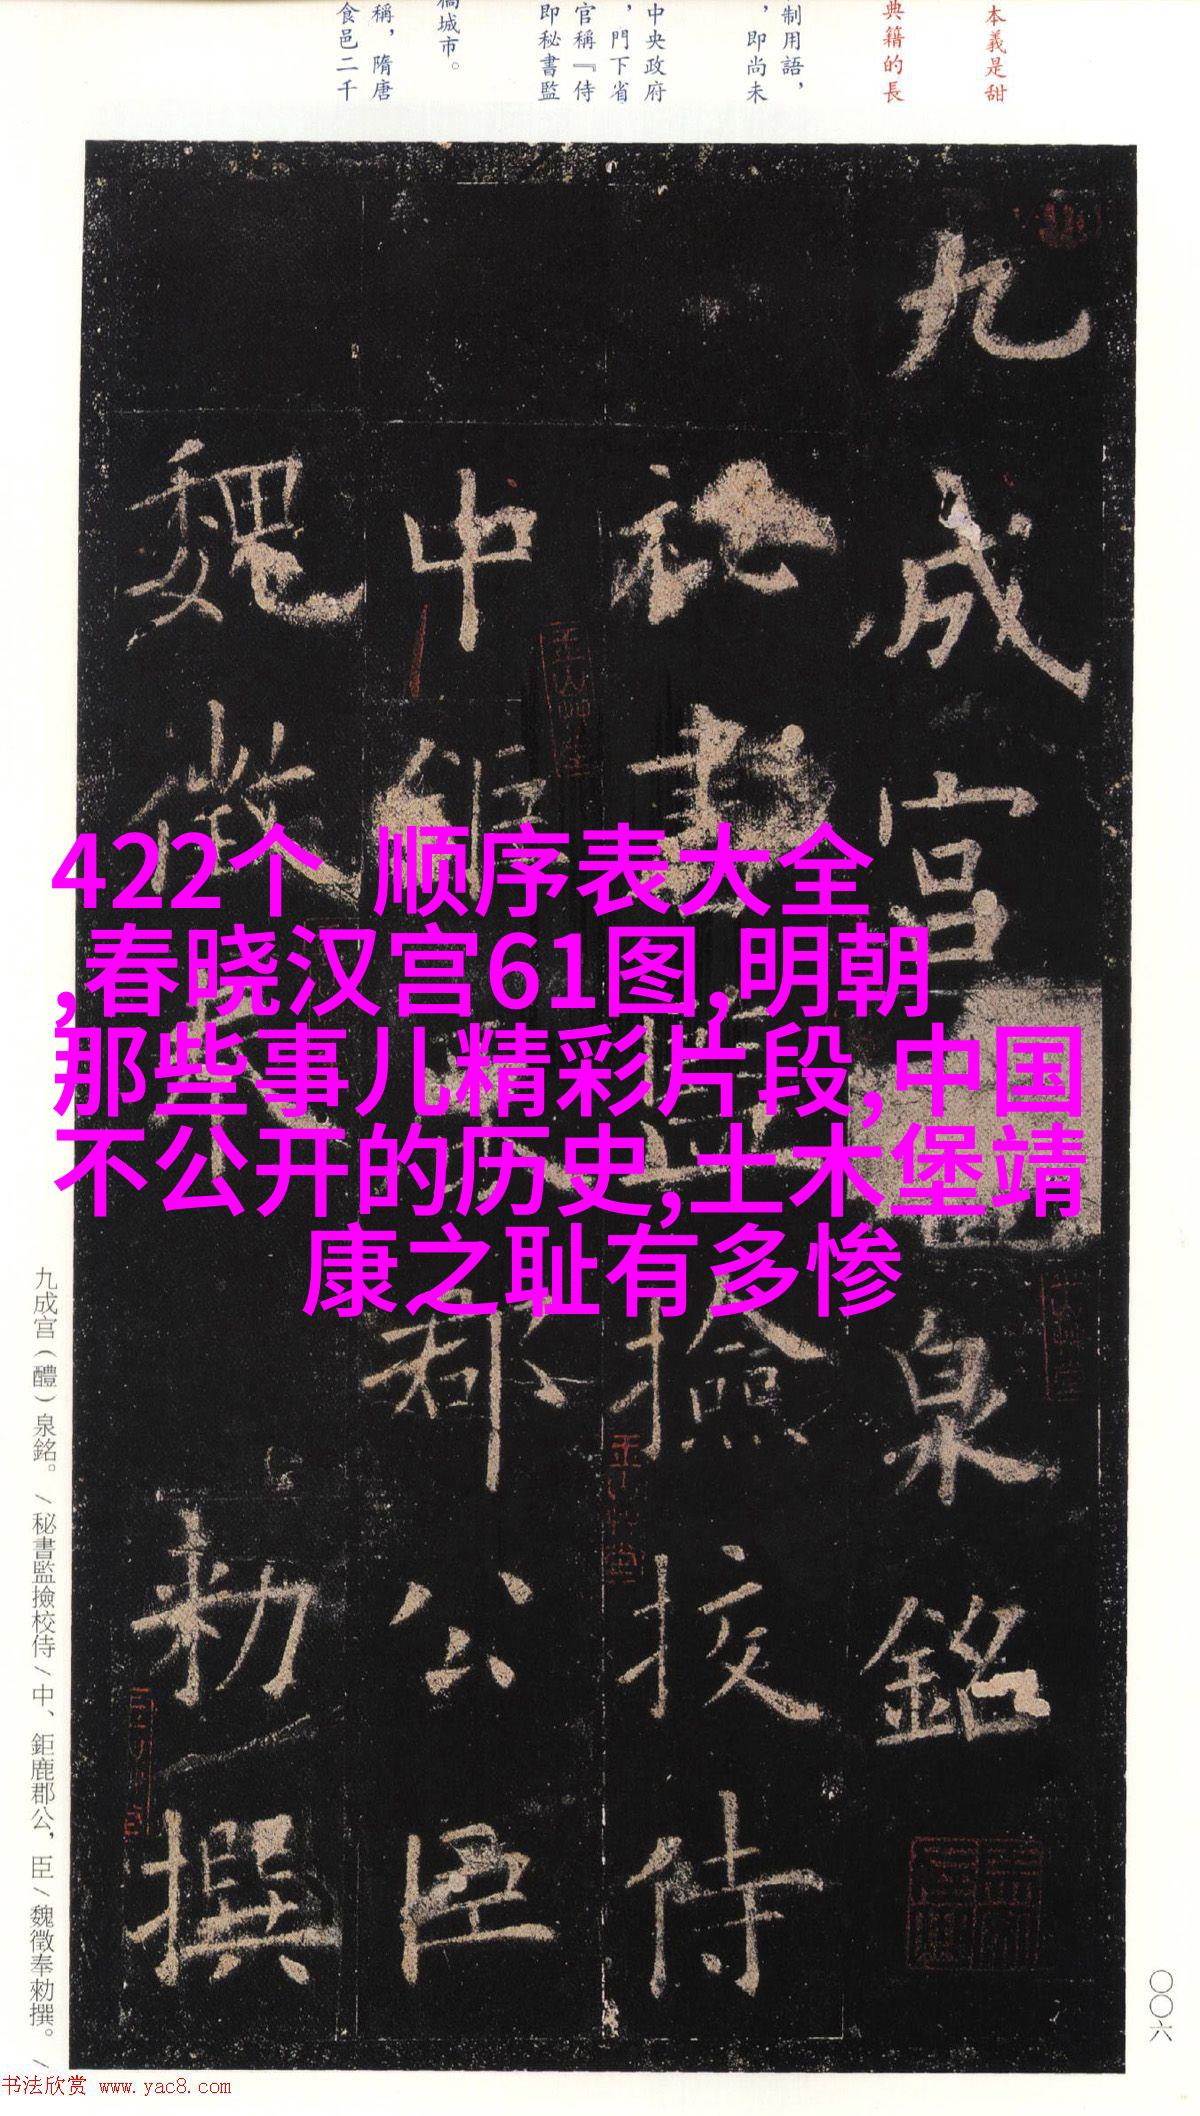 本義是甜
典籍的長
制用語，
，即尚未
中央政府
，門下省
官稱『侍
即秘書監
稿城市。
稱，隋唐
食邑二千
九成宮
泉銘
祕書
撿挍侍
中
郡公臣
魏徵
勑撰
422个 顺序表大全
,春晓汉宫61图,明朝
那些事儿精彩片段,中国
不公开的历史,土木堡靖
康之耻有多惨
九成宮（醴）泉銘。/秘書監撿校侍/中、鉅鹿郡公，臣/魏徵奉勑撰。/
〇〇六
书法欣赏 www.yac8.com